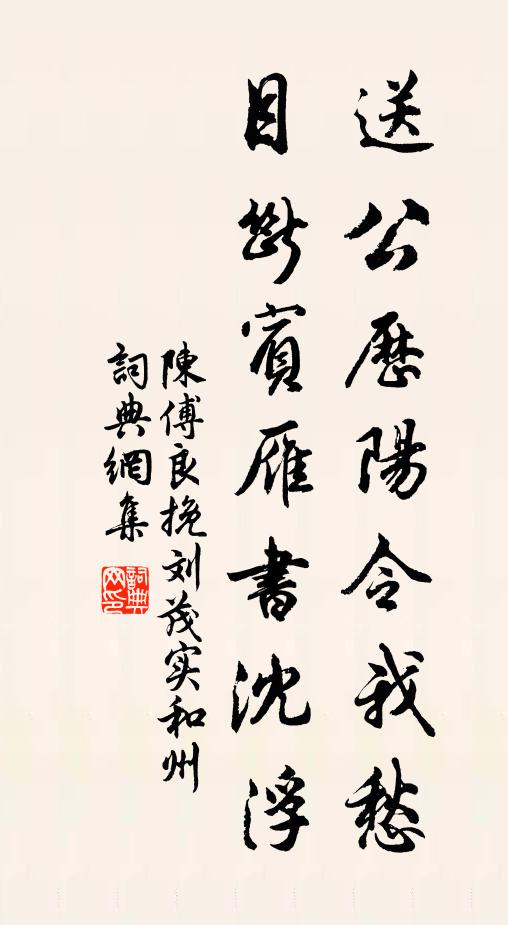 送公歷陽令我愁
目断賓雁書沈浮
陳傅良挽刘茂实和州
詞典網集
詞典網印